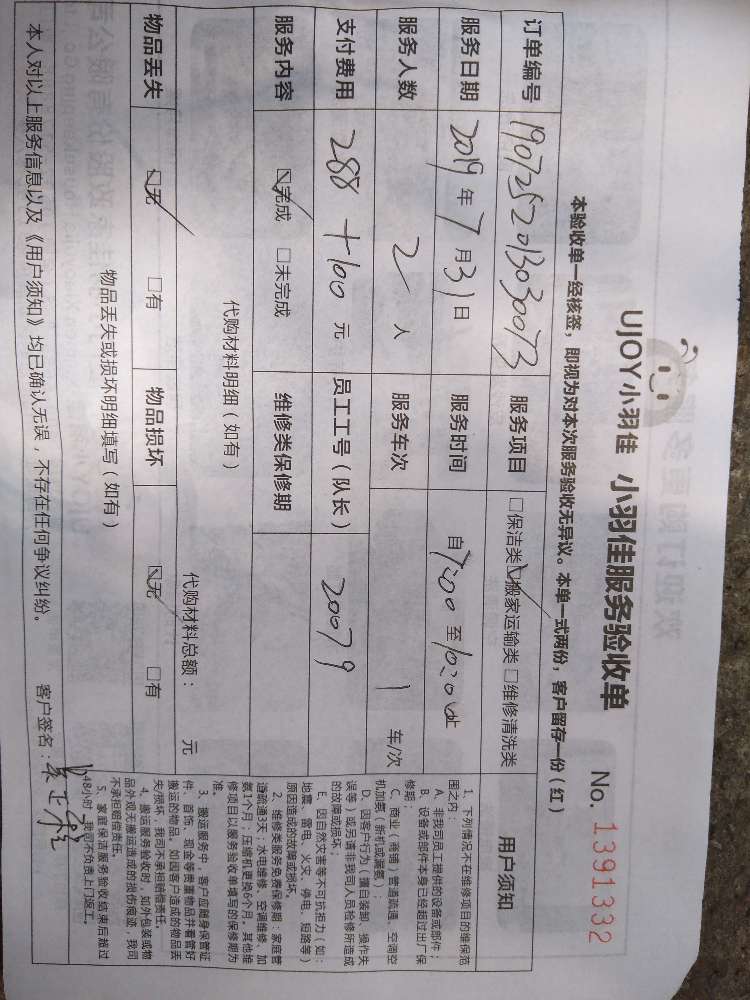 UJOY小羽佳 小羽佳服务验收单
No. 1391332
本验收单一经核签，即视为对本次服务验收无异议。本单一式两份，客户留存一份（红）
订单编号 1907252013030073 服务项目 □保洁类☑搬家运输类□维修清洗类
服务日期 2019年7月31日 服务时间 自7:00至10:00止
服务人数 2人 服务车次 1车/次
支付费用 288+100元 员工工号（队长） 20079
服务内容 ☑完成 □未完成 维修类保修期
代购材料明细（如有）
代购材料总额： 元
物品丢失 ☑无 □有 物品损坏 ☑无 □有
物品丢失或损坏明细填写（如有）
本人对以上服务信息以及《用户须知》均已确认无误，不存在任何争议纠纷。 客户签名：
用户须知
1、下列情况不在维修项目的维保范
围之内：
A、非我司员工提供的设备或部件；
B、设备或部件本身已经超过出厂保
修期；
C、商业（商铺）管道疏通、空调空
机加氨（新机或漏氨）
D、因客户行为（擅自装卸、操作失
误等）或另请非我司人员检修所造成
的故障或损坏。
E、因自然灾害等不可抗拒力（如：
地震、雷电、火灾、停电、短路等）
原因造成的故障或损坏。
2、维修类服务免费保修期：家庭管
道疏通3天；水电维修、空调维修、加
氨1个月；压缩机更换6个月。其他维
修项目以服务验收单填写的保修期为
准。
3、搬运服务中，客户应随身保管证
件、首饰、现金等贵重物品并看管好
搬运的物品。如因客户造成的物品丢
失/损坏，我司不承担赔偿责任。
4、搬运服务验收后，如外包装或物
品外观无搬运造成的损伤痕迹，我司
不承担赔偿责任。
5、家庭保洁服务验收结束后超过
48小时，我司不负责上门返工。